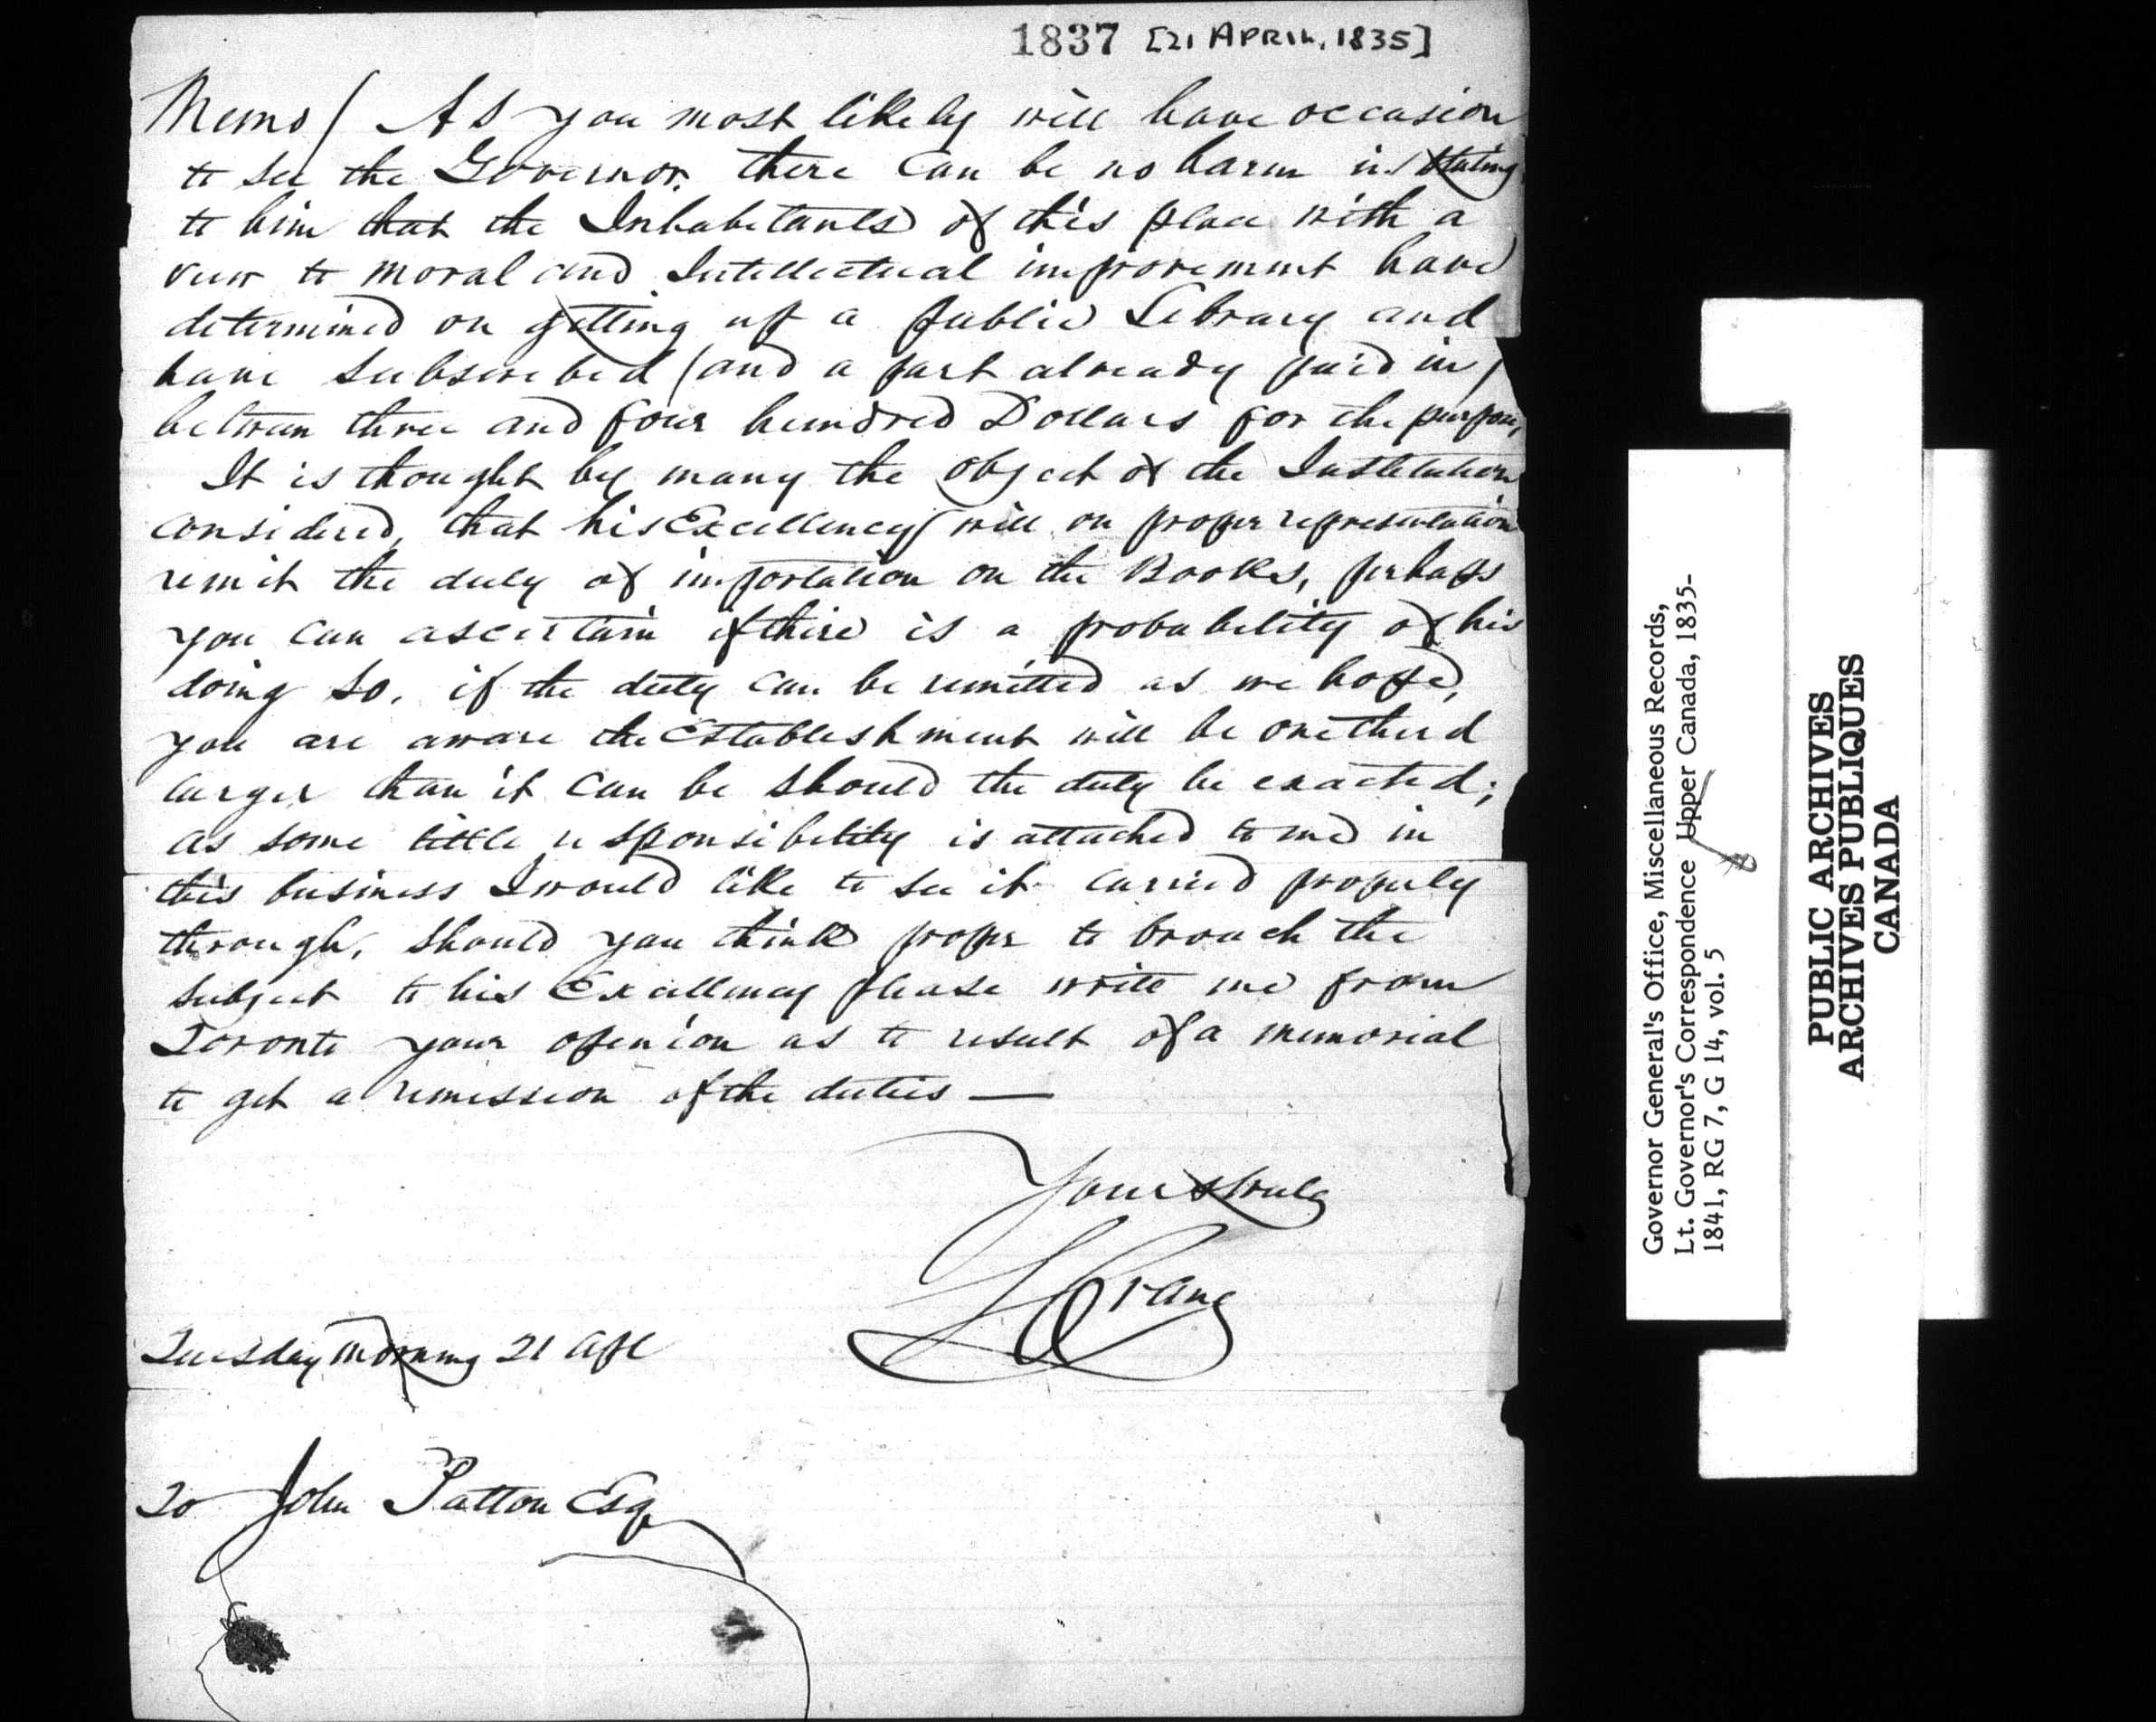 1837 [21 APRIL, 1835]
Memo/ As you most likely will have occasion
to see the Governor, there can be no harm in stating
to him that the Inhabitants of this place with a
view to moral and Intellectual improvement have
determined on getting up a public Library and
have subscribed (and a part already paid in)
between three and four hundred Dollars for the purpose,
It is thought by many the object of the Institution
considered, that his Excellency will on proper representation
remit the duty of importation on the Books, perhaps
you can ascertain if there is a probability of his
doing so. if the duty can be remitted as we hope,
you are aware the Establishment will be one third
larger than it can be should the duty be exacted;
as some little responsibility is attached to me in
this business I would like to see it carried properly
through, should you think proper to broach the
subject to his Excellency please write me from
Toronto your openion as to result of a memorial
to get a remission of the duties —
Yours truly
Crane
Tuesday morning 21 Apl
To John Patton Esq
Governor General's Office, Miscellaneous Records,
Lt. Governor's Correspondence Upper Canada, 1835-
1841, RG 7, G 14, vol. 5
PUBLIC ARCHIVES
ARCHIVES PUBLIQUES
CANADA